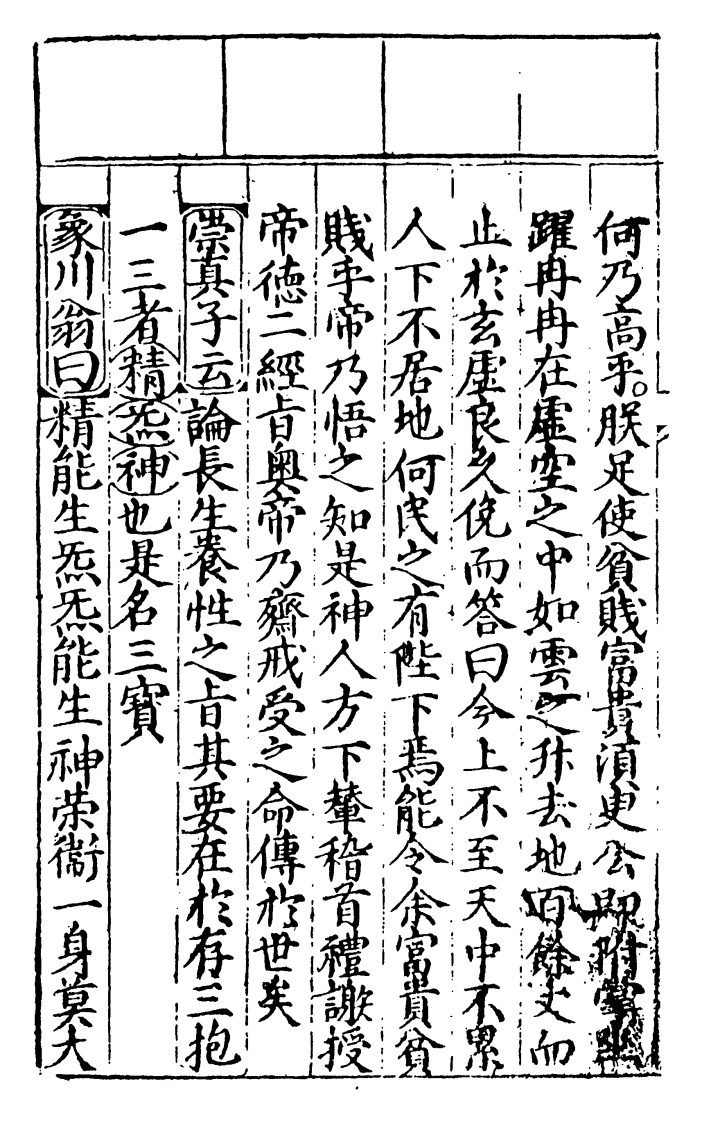 何乃高乎。朕足使貧賤富貴湏㬰公即拊掌坐
躍冉冉在虛空之中如雲之升去地百餘丈而
止於玄虛良久俛而答曰今上不至天中不累
人下不居地何民之有陛下焉能令余富貴貧
賤乎帝乃悟之知是神人方下輦稽首禮謝授
帝徳二經㫖奧帝乃齋戒受之命傳於世矣
崇真子云論長生養性之㫖其要在於存三抱
一三者精炁神也是名三寳
象川翁曰精能生炁炁能生神荣衞一身莫大